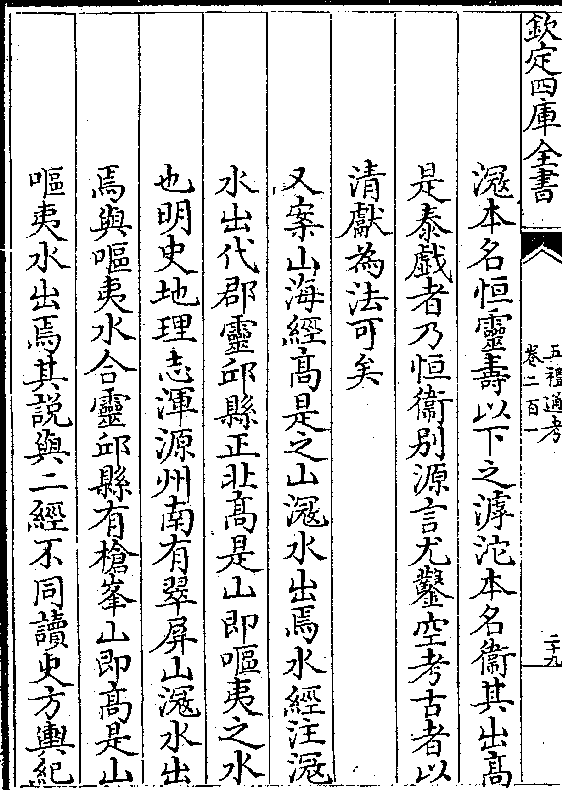 欽定四庫全書
五禮通考
卷二百一
二十九
滱本名恒靈壽以下之滹沱本名衞其出高
是泰戲者乃恒衞别源言尤鑿空考古者以
清獻為法可矣
又案山海經高是之山滱水出焉水經注滱
水出代郡靈邱縣正北高是山即嘔夷之水
也明史地理志渾源州南有翠屏山滱水出
焉與嘔夷水合靈邱縣有槍峯山即高是山
嘔夷水出焉其説與二經不同讀史方輿紀